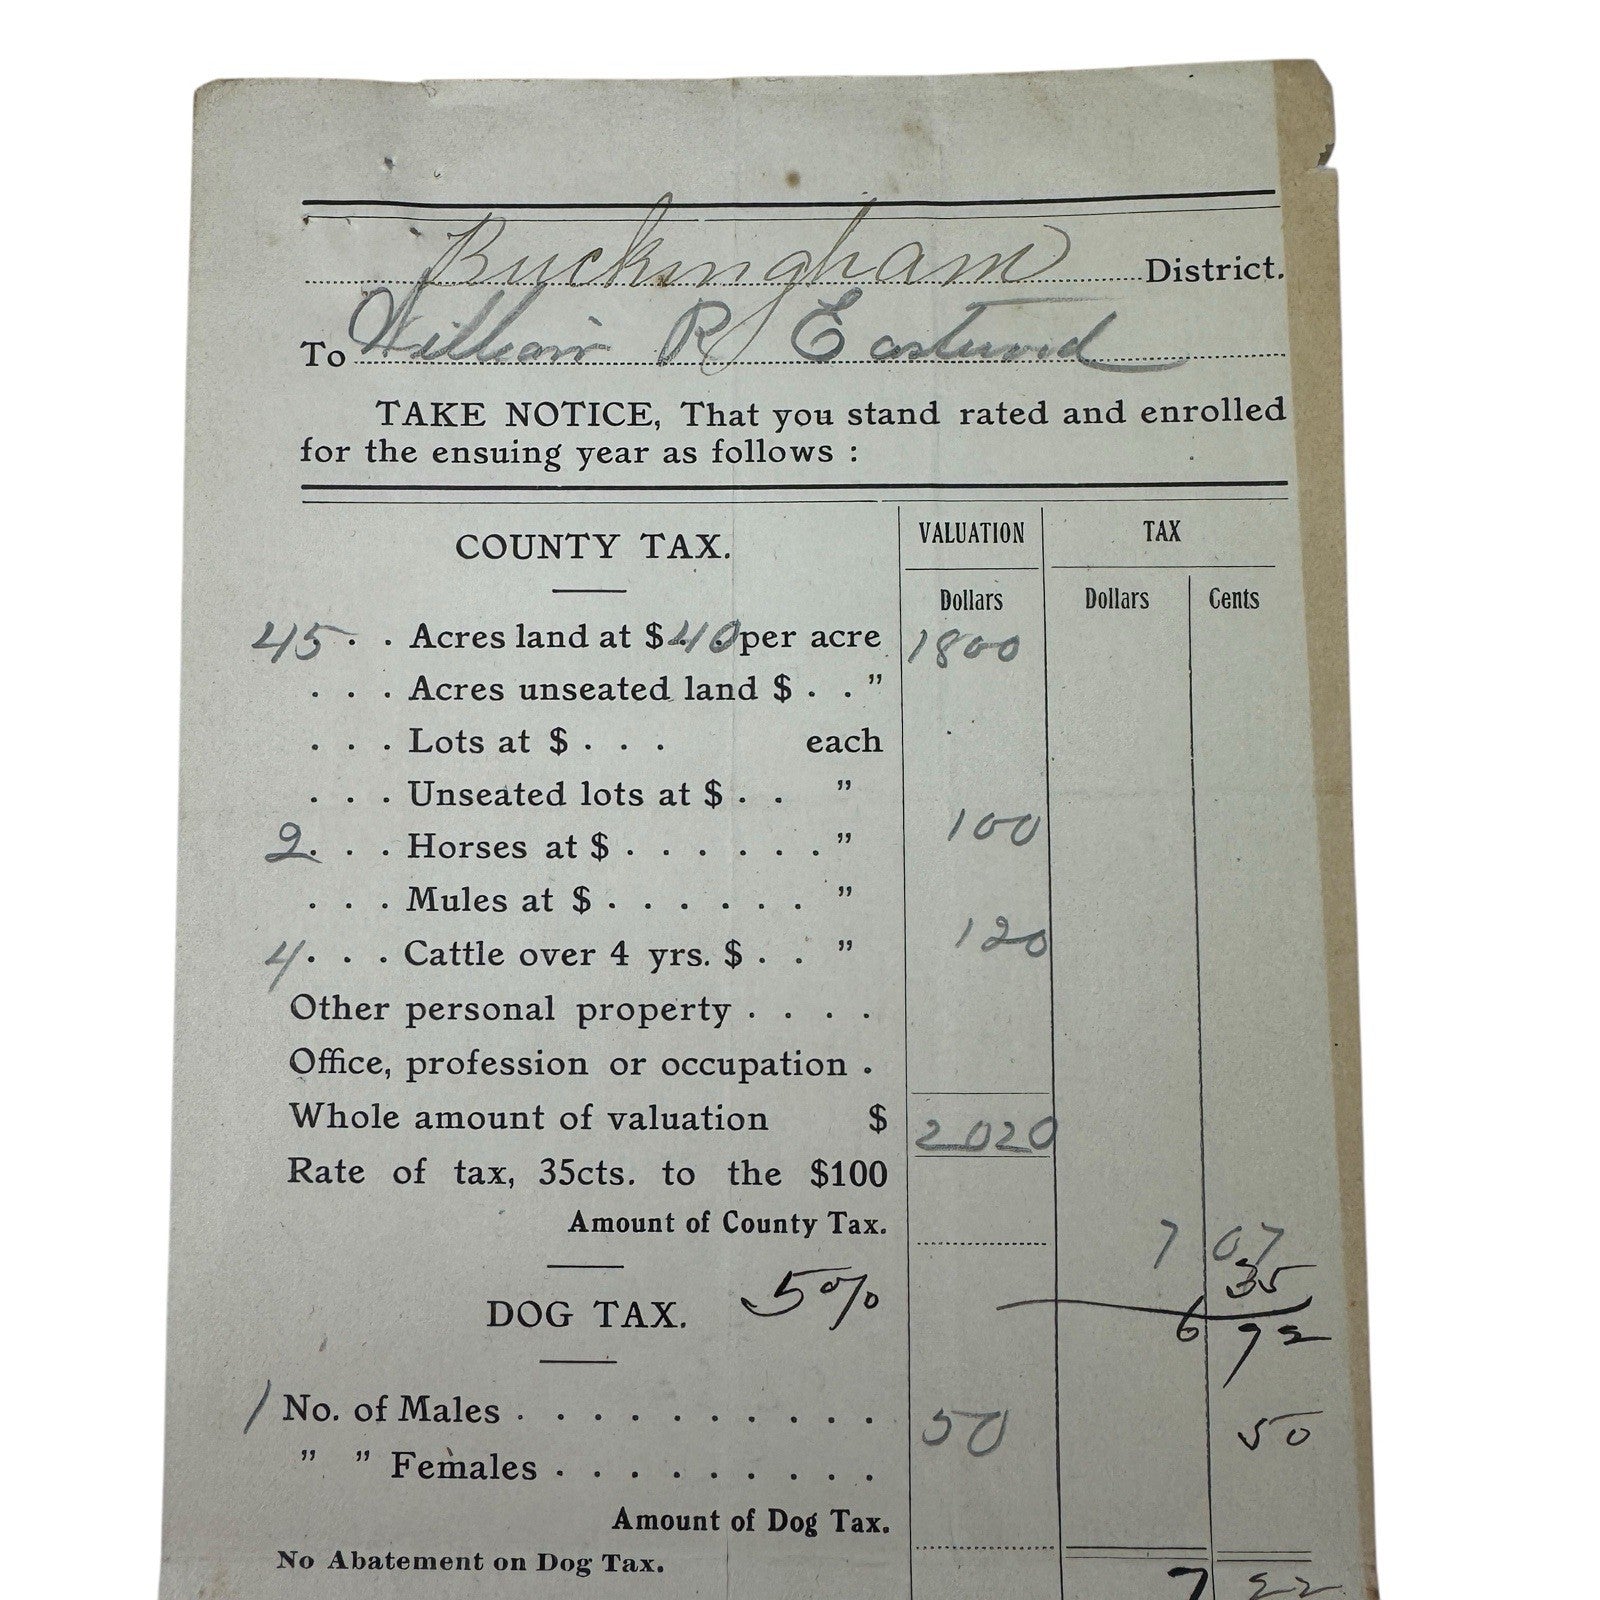 Buckingham District.
To William R Eastwood
TAKE NOTICE, That you stand rated and enrolled
for the ensuing year as follows :
COUNTY TAX. VALUATION TAX
Dollars Dollars Cents
45 . . Acres land at $ 40 per acre 1800
. . . Acres unseated land $ . . "
. . . Lots at $ . . . each
. . . Unseated lots at $ . . "
2 . . . Horses at $ . . . . . . " 100
. . . Mules at $ . . . . . . "
4 . . . Cattle over 4 yrs. $ . . " 120
Other personal property . . . .
Office, profession or occupation .
Whole amount of valuation $ 2020
Rate of tax, 35cts. to the $100
Amount of County Tax. 7 07
35
DOG TAX. 5% 6 72
1 No. of Males . . . . . . . . . . 50 50
" " Females . . . . . . . . .
Amount of Dog Tax.
No Abatement on Dog Tax.
7 22